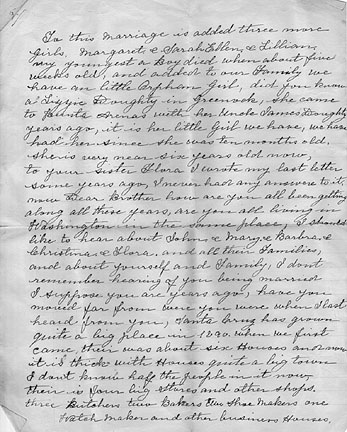 To this Marriage is added three more
Girls, Margaret, & Sarah Ellen, & Lillian,
my youngest a Boy died when about five
weeks old, and added to our Family we
have an little Orphan Girl, did you know
a Lizzie Doughty in Greenock, she came
to Punta Arenas with her Uncle James Doughty
years ago, it is her little Girl we have, we have
had her since she was ten months old,
she is very near six years old now,
to your Sister Flora I wrote my last letter
some years ago, I never had any answere to it,
now Dear Brother how are you all been getting
along all these years, are you all living in
Washington in the same place, I should
like to hear about John, & Mary, & Barbra, &
Christina, & Flora, and all their Families,
and about yourself and Family, I don't
remember hearing of you being married
I suppose you are years ago, have you
moved far from were you were when I last
heard from you, Santa Cruz has grown
quite a big place in 1890 when we first
came their was about six Houses and now
it is thick with Houses quite a big town
I dont know half the people in it now
their is four big Stores and other shops,
three Butchers two Bakers two Shoe Makers one
Watch Maker and other business Houses,